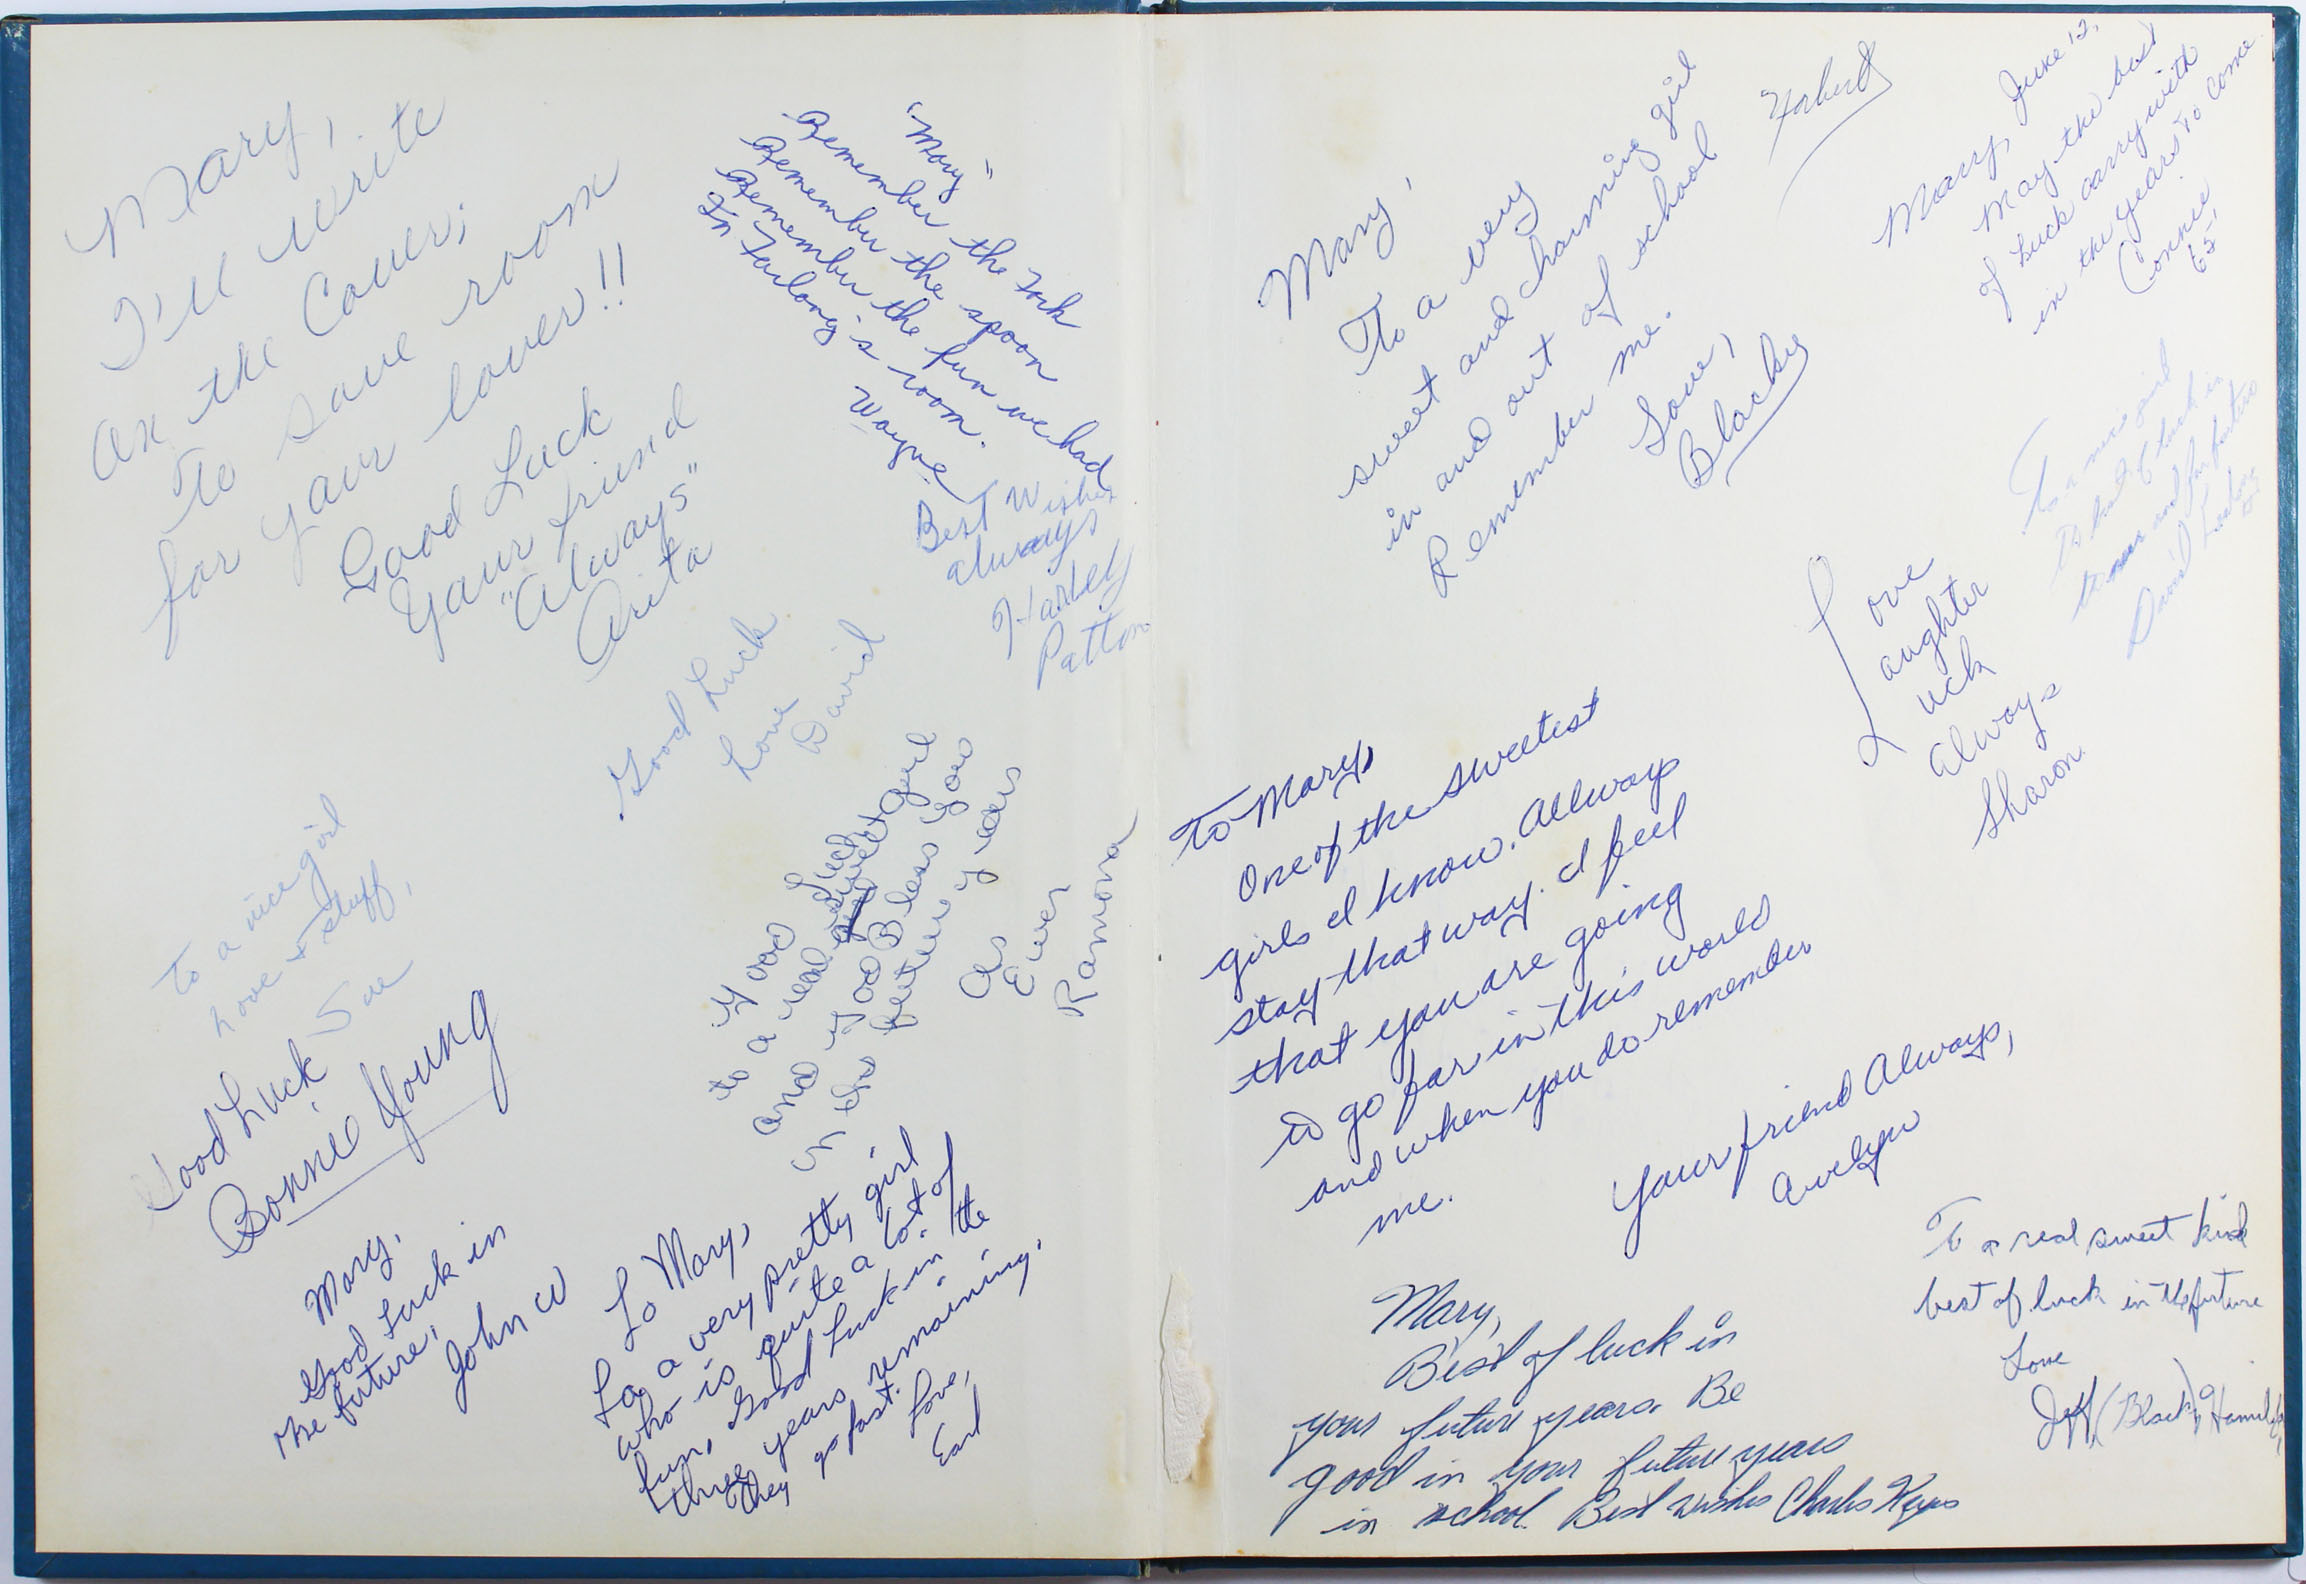 Mary,
I'll write
on the Cover;
To save room
for your lover!!
Good Luck
Your friend
"Always"
Arita
"Mary"
Remember the Fork
Remember the spoon
Remember the fun we had
In Farlong's room.
Wayne
Best Wishes
always
Harley
Patton
Good Luck
Love
David
To a nice girl
Love & stuff,
Good Luck
Bonnie Young
Good Luck
to a real sweet girl
and good Bless you
in the future years
As
Ever
Ramona
Mary,
Good Luck in
the future,
John W
To Mary,
To a very pretty girl
who is quite a lot of
fun, Good Luck in the
three years remaining.
They go fast.
Love,
Earl
Mary,
To a very
sweet and charming girl
in and out of school
Remember me.
Love,
Blacky
Herbert
June 12,
Mary,
May the best
of Luck carry with
in the years to come
Connie
65'
To a nice girl
The best of luck in
the near and far future
David
Love
aughter
uck
always
Sharon
To Mary,
One of the sweetest
girls I know. Allways
stay that way. I feel
that you are going
to go far in this world
and when you do remember
me.
Your friend Always,
Evelyn
Mary,
Best of luck in
your future years. Be
good in your future years
in school. Best wishes Charles Keyes
To a real sweet kid
best of luck in the future
Love
Jeff (Black)